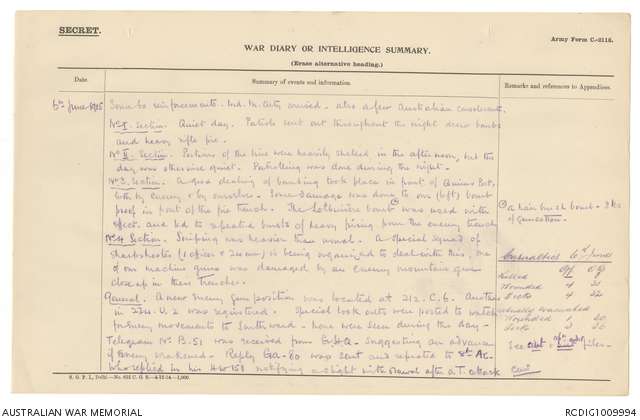 SECRET.
Army Form C-2118.
WAR DIARY OR INTELLIGENCE SUMMARY.
(Erase alternative heading.)
Date.
Summary of events and information.
Remarks and references to Appendices.
6th June 1915
reinforcements Ind. M. Arty arrived - also a few Australian convalescents.
No I. Section. Quiet day. Patrols sent out throughout the night drew bombs
and heavy rifle fire.
No II. Section. Portions of the line were heavily shelled in the afternoon, but the
day was otherwise quiet. Patrolling was done during the night.
No 3. Section. A good dealing of bombing took place in front of Quinns Post,
both by enemy & by ourselves. Some damage was done to our (left) bomb
proof in front of the fire trench. The bomb was used with
effect and led to repeated bursts of heavy firing from the enemy trench
No 4 Section. Sniping was heavier than usual. A special squad of
sharpshooters (1 officer & 20 men) is being organized to deal with this, one
of our machine guns was damaged by an enemy mountain gun
close up in their trenches.
General. A new enemy gun position was located at 212. C. 6. Another
in 224. U. 2 was registered. Special look outs were posted to watch
for enemy movements to Southward - none were seen during the day.
Telegram No B. 51 was received from GHQ. suggesting an advance
if Enemy weakened. Reply Ga. 80 was sent and repeated to 8th A.C.
who replied in his HW 158 notifying a slight withdrawal after a T. attack
a hair brush bomb - 3 lbs
of guncotton.
Casualties 6th June
Off O R
Killed
Wounded 4
Sick 4
actually evacuated
Wounded 1
Sick 2
See files.
S. G. P. I., Delhi
AUSTRALIAN WAR MEMORIAL
RCDIG1009994